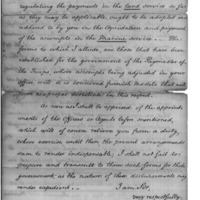 regulating the payments in the land service so far
as they may be applicable, ought to be adopted and
adhered to by you in the liquidation and payment
of the accounts in the Marine service. The
forms to which I allude, are those that have been
established for the government of the Paymaster of
the troops whose accounts being adjusted in your
office will it is conceived furnish models that will
form a proper direction in this respect.
As soon as I shall be apprised of the appoint-
ments of the Officers or Agents before mentioned,
which will of course relieve you from a duty,
whose exercise until then the present arrangements
seem to render indispensable; I shall not fail to
prepare and transmit to them such forms for their
government as the nature of their disbursements may
render expedient.
I am Sir,
very respectfully